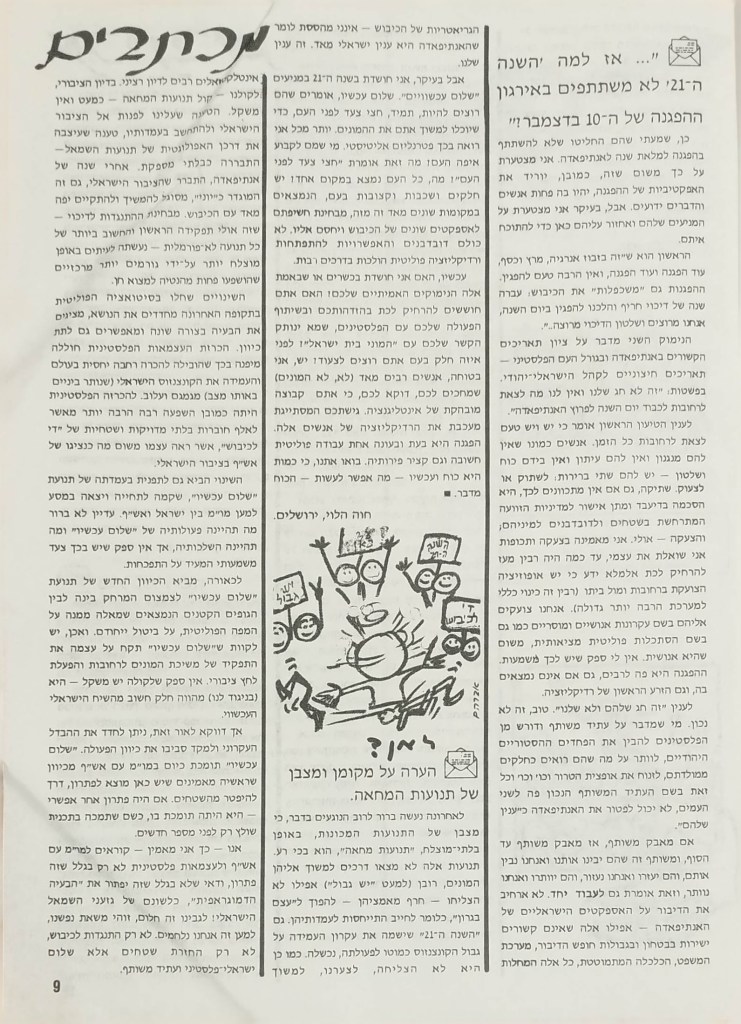 מכתבים
"... אז למה 'השנה
ה־21' לא משתתפים באירגון
ההפגנה של ה־10 בדצמבר?"
כן, שמעתי שהם החליטו שלא להשתתף
בהפגנה למלאת שנה לאנתיפאדה. אני מצטערת
על כך משום שזה, כמובן, יוריד את
האפקטיביות של ההפגנה, יהיו בה פחות אנשים
והדברים ידועים. אבל, בעיקר אני מצטערת על
המניעים שלהם ואחזור עליהם כאן כדי להתווכח
איתם.
הראשון הוא ש"זה בזבוז אנרגיה, מרץ וכסף,
עוד הפגנה ועוד הפגנה, ואין הרבה טעם להפגין.
ההפגנות גם "משכפלות" את הכיבוש: עברה
שנה של דיכוי חריף והלכנו להפגין ביום השנה,
אנחנו מרוצים ושלטון הדיכוי מרוצה..".
הנימוק השני מדבר על ציון תאריכים
הקשורים באנתיפאדה ובגורל העם הפלסטיני —
תאריכים חיצוניים לקהל הישראלי־יהודי.
בפשטות: "זה לא חג שלנו ואין לנו מה לצאת
לרחובות לכבוד יום השנה לפרוץ האנתיפאדה".
לענין הטיעון הראשון אומר כי יש ויש טעם
לצאת לרחובות כל הזמן. אנשים כמונו שאין
להם מנגנון ואין להם עיתון ואין בידם כוח
ושלטון — יש להם שתי ברירות: לשתוק או
לצעוק. שתיקה, גם אם אין מתכוונים לכך, היא
הסכמה בדיעבד ומתן אישור למדיניות הזוועה
המתרחשת בשטחים ולדובדבנים למיניהם;
והצעקה — אולי. אני מאמינה בצעקה ותכופות
אני שואלת את עצמי, עד כמה היה רבין מעז
להרחיק לכת אלמלא ידע כי יש אופוזיציה
הצועקת ברחובות ומול ביתו (רבין זה כינוי כללי
למערכת הרבה יותר גדולה). אנחנו צועקים
אליהם בשם עקרונות אנושיים ומוסריים כמו גם
בשם הסתכלות פוליטית מציאותית, משום
שהיא אנושית. אין לי ספק שיש לכך משמעות.
ההפגנה היא פה לרבים, גם אם אינם נמצאים
בה, וגם הזרע הראשון של רדיקליזציה.
לענין "זה חג שלהם ולא שלנו". טוב, זה לא
נכון. מי שמדבר על עתיד משותף ודורש מן
הפלסטינים להבין את הפחדים ההסטוריים
היהודיים, לוותר על מה שהם רואים כחלקים
ממולדתם, לזנוח את אופצית הטרור וכו' וכו' וכל
זאת בשם העתיד המשותף הנכון פה לשני
העמים, לא יכול לפטור את האנתיפאדה כ"ענין
שלהם".
אם מאבק משותף, אז מאבק משותף עד
הסוף, ומשותף זה שהם יבינו אותנו ואנחנו נבין
אותם, והם יעזרו ואנחנו נעזור, והם יוותרו ואנחנו
נוותר, וזאת אומרת גם לעבוד יחד. לא ארחיב
את הדיבור על האספקטים הישראליים של
האנתיפאדה — אפילו אלה שאינם קשורים
ישירות בבטחון ובגבולות חופש הדיבור, מערכת
המשפט, הכלכלה המתמוטטת, כל אלה המחלות
הגריאטריות של הכיבוש — אינני מהססת לומר
שהאנתיפאדה היא ענין ישראלי מאד. זה ענין
שלנו.
אבל בעיקר, אני חושדת בשנה ה־21 במניעים
"שלום עכשוויים". שלום עכשיו, אומרים שהם
רוצים להיות, תמיד, חצי צעד לפני העם, כדי
שיוכלו למשוך אתם את ההמונים. יותר מכל אני
רואה בכך פטרנליזם אליטיסטי. מי שמם לקבוע
איפה העם! מה זאת אומרת "חצי צעד לפני
העם"! מה, כל העם נמצא במקום אחד! יש
חלקים ושכבות וקצוות בעם, הנמצאים
במקומות שונים מאד זה מזה, מבחינת חשיפתם
לאספקטים שונים של הכיבוש ויחסם אליו. לא
כולם דובדבנים והאפשרויות להתפתחות
ורדיקליזציה פוליטית הולכות בדרכים רבות.
עכשיו, האם אני חושדת בכשרים או שבאמת
אלה הנימוקים האמיתיים שלכם! האם אתם
חוששים להרחיק לכת בהזדהותכם ובשיתוף
הפעולה שלכם עם הפלסטינים, שמא ינותק
הקשר שלכם עם "המוני בית ישראל"! לפני
איזה חלק בעם אתם רוצים לצעוד! יש, אני
בטוחה, אנשים רבים מאד (לא, לא המונים)
שמחכים לכם, דוקא לכם, כי אתם קבוצה
מובהקת של אינטליגנציה. גישתכם המסתייגת
מעכבת את הרדיקליזציה של אנשים אלה.
הפגנה היא בעת ובעונה אחת עבודה פוליטית
חשובה וגם קציר פירותיה. בואו אתנו, כי כמות
היא כוח ועכשיו — מה אפשר לעשות — הכוח
מדבר. ■
חוה הלוי, ירושלים.
השנה
ה־21
יש
גבול
די
לכיבוש
אברהם
רמן?
הערה על מקומן ומצבן
של תנועות המחאה.
לאחרונה נעשה ברור לרוב הנוגעים בדבר, כי
מצבן של התנועות המכונות, באופן
בלתי־מוצלח, "תנועות מחאה", הוא בכי רע.
תנועות אלה לא מצאו דרכים למשוך אליהן
המונים, רובן (למעט "יש גבול") אפילו לא
הצליחו — חרף מאמציהן — להפוך ל"עצם
בגרון", כלומר לחייב התייחסות לעמדותיהן. גם
"השנה ה־21" שישמה את עקרון העמידה על
גבול הקונצנזוס כמוטו לפעולתה, נכשלה. כמו כן
היא לא הצליחה, לצערנו, למשוך
אינטלקטואלים רבים לדיון רציני. בדיון הציבורי,
לקולנו — קול תנועות המחאה — כמעט ואין
משקל. הטענה שעלינו לפנות אל הציבור
הישראלי ולהתחשב בעמדותיו, טענה שעיצבה
את דרכן האפולוגטית של תנועות השמאל—
התבררה כבלתי מספקת. אחרי שנה של
אנתיפאדה, התברר שהציבור הישראלי, גם זה
המוגדר כ"יוני", מסוגל להמשיך ולהתקיים יפה
מאד עם הכיבוש. מבחינת ההתנגדות לדיכוי —
שזה אולי תפקידה הראשון והחשוב ביותר של
כל תנועה לא־פורמלית — נעשתה לעיתים באופן
מוצלח יותר על־ידי גורמים יותר מרכזיים
שהושפעו פחות מהנטיה למצוא חן.
השינויים שחלו בסיטואציה הפוליטית
בתקופה האחרונה מחדדים את הנושא, מציינים
את הבעיה בצורה שונה ומאפשרים גם לתת
כיוון. הכרזת העצמאות הפלסטינית חוללה
מיפנה בכך שהובילה להכרה רחבה יחסית בעולם
והעמידה את הקונצנזוס הישראלי (שנותר ביניים
באותו מצב) מגמגם ועלוב. להכרזה הפלסטינית
היתה כמובן השפעה רבה הרבה יותר מאשר
לאלף חוברות בלתי מדויקות ושטחיות של "די
לכיבוש", אשר ראה עצמו משום מה כנציגו של
אש"ף בציבור הישראלי.
השינוי הביא גם לתפנית בעמדתה של תנועת
"שלום עכשיו", שקמה לתחייה ויצאה במסע
למען מו"מ בין ישראל ואש"ף. עדיין לא ברור
מה תהיינה פעולותיה של "שלום עכשיו" ומה
תהיינה השלכותיה, אך אין ספק שיש בכך צעד
משמעותי המעיד על התפכחות.
לכאורה, מביא הכיוון החדש של תנועת
"שלום עכשיו" לצמצום המרחק בינה לבין
הגופים הקטנים הנמצאים שמאלה ממנה על
המפה הפוליטית, על ביטול ייחודם. ואכן, יש
לקוות ש"שלום עכשיו" תקח על עצמה את
התפקיד של משיכת המונים לרחובות והפעלת
לחץ ציבורי. אין ספק שלקולה יש משקל — היא
(בניגוד לנו) מהווה חלק חשוב מהשיח הישראלי
העכשווי.
אך דווקא לאור זאת, ניתן לחדד את ההבדל
העקרוני ולמקד סביבו את כיוון הפעולה. "שלום
עכשיו" תומכת כיום במו"מ עם אש"ף מכיוון
שראשיה מאמינים שיש כאן מוצא לפתרון, דרך
להיפטר מהשטחים. אם היה פתרון אחר אפשרי
— היא היתה תומכת בו, כשם שתמכה בתכנית
שולץ רק לפני מספר חדשים.
אנו — כך אני מאמין — קוראים למו"מ עם
אש"ף ולעצמאות פלסטינית לא רק בגלל שזה
פתרון, ודאי שלא בגלל שזה יפתור את "הבעיה
הדמוגראפית", כלשונם של גזעני השמאל
הישראלי! לגבינו זה חלום, זוהי משאת נפשנו,
למען זה אנחנו נלחמים. לא רק התנגדות לכיבוש,
לא רק החזרת שטחים אלא שלום
ישראלי־פלסטיני ועתיד משותף.
9